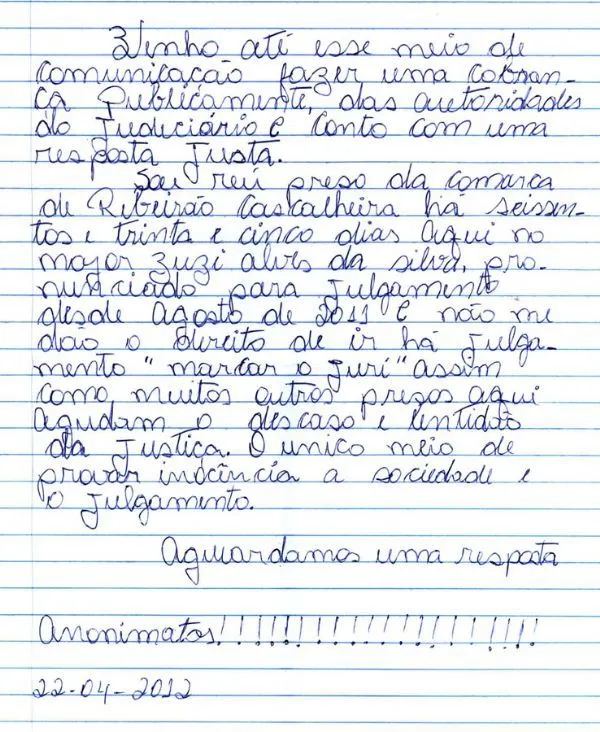 Venho até esse meio de
comunicação fazer uma cobran-
ça Publicamente, das autoridades
do Judiciário e conto com uma
resposta Justa.
Sou reú preso da comarca
de Ribeirão Cascalheira há seissen-
tos e trinta e cinco dias aqui no
major zuzi alves da silva, pro-
nunciado para Julgamento
desde Agosto de 2011 e não me
dão o Direito de ir há Julga-
mento "marcar o Juri" assim
como muitos outros presos aqui
aguardam o descaso e lentidão
da Justiça. O unico meio de
provar inôcência a sociedade e
o Julgamento.
Aguardamos uma resposta
Anonimatos!!!!!!!!!!!!!!!!!!!!
22-04-2012